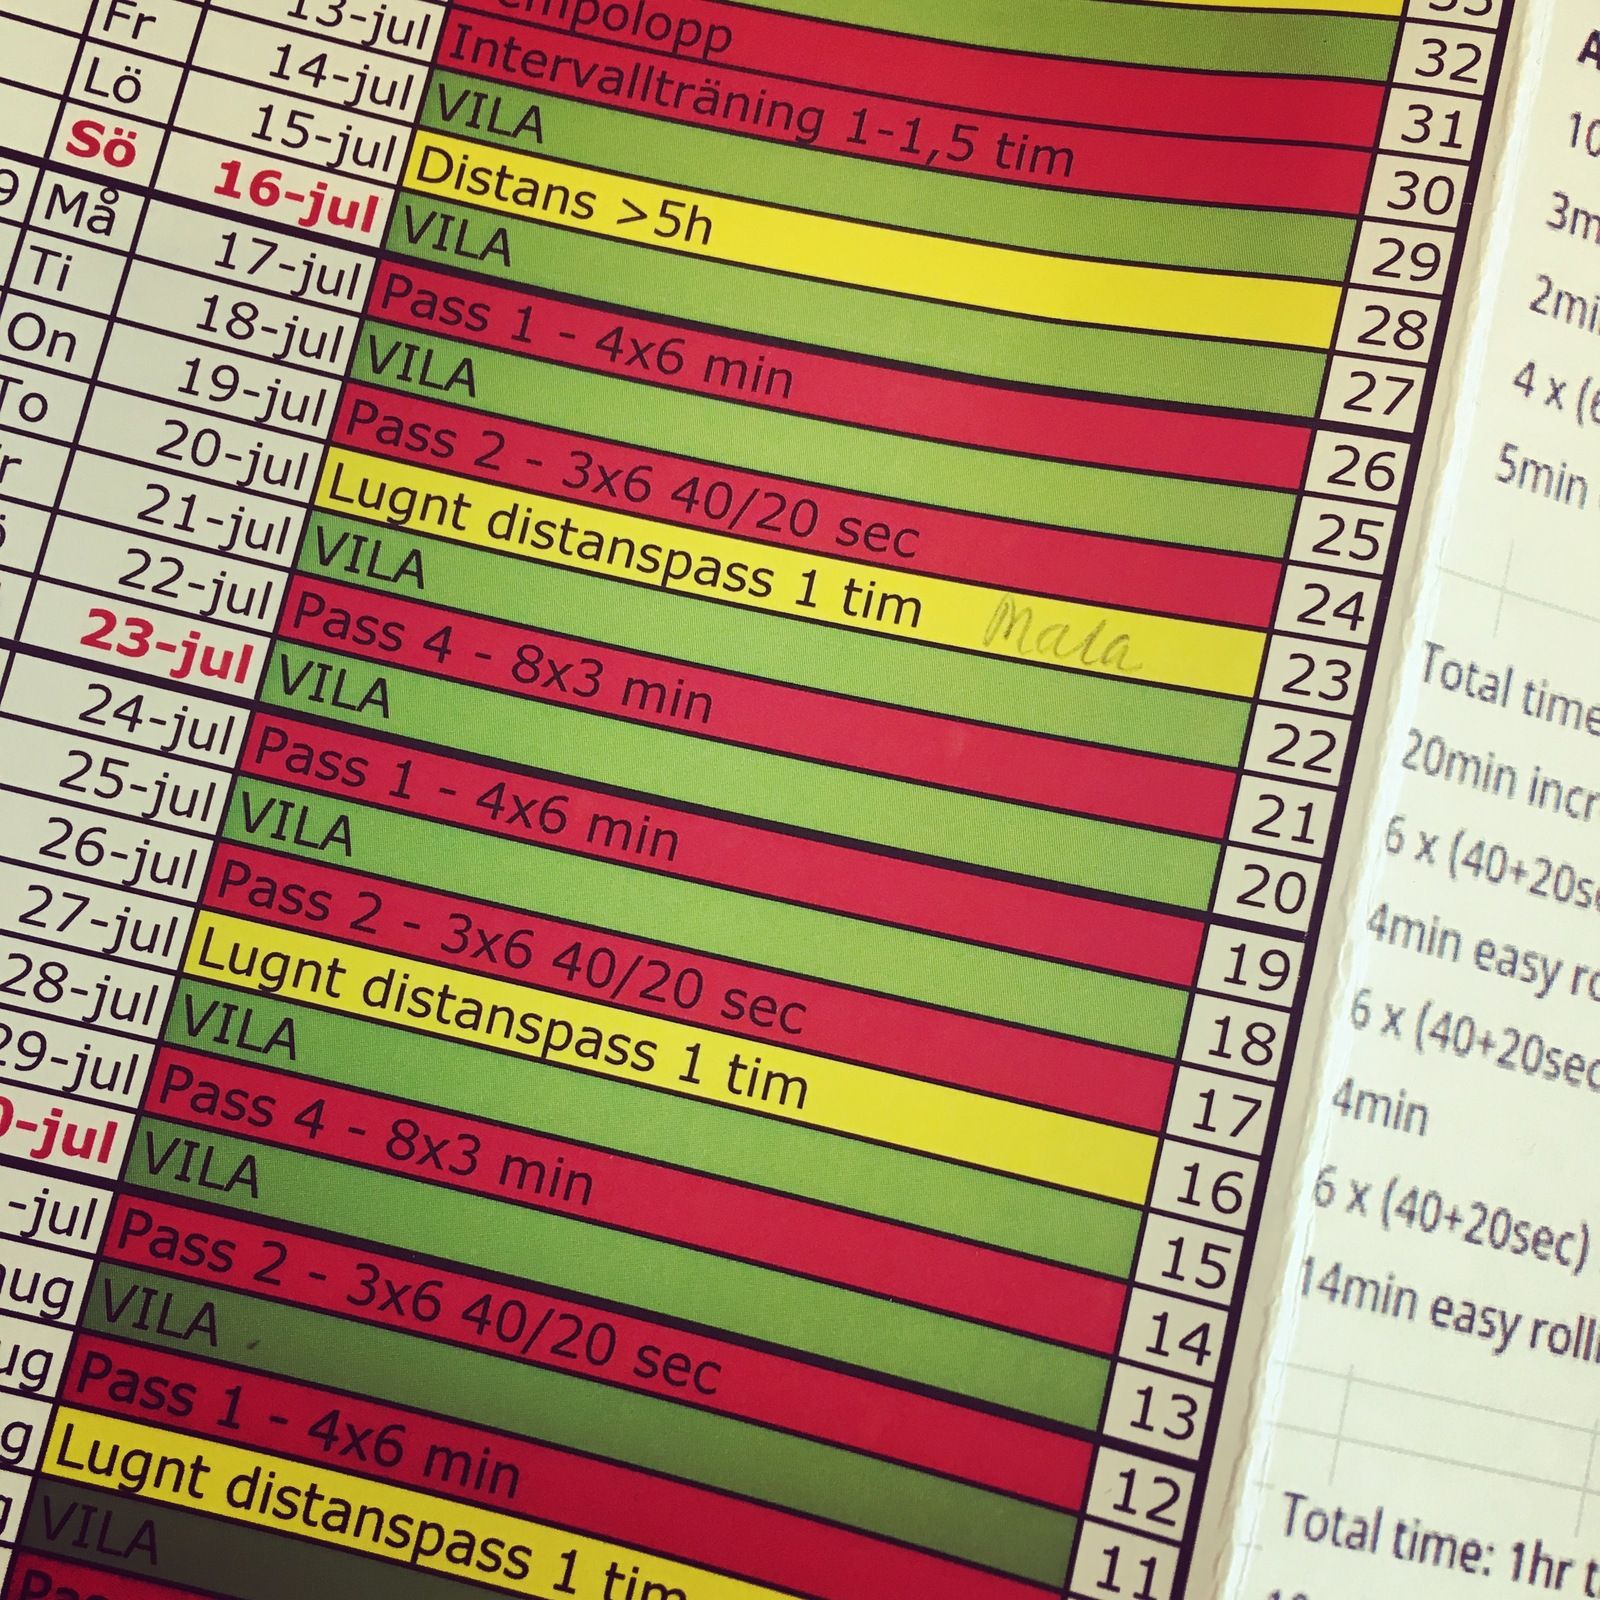 32
mpolopp 31
13-jul Intervallträning 1-1,5 tim 30
Fr 14-jul VILA 29
Lö 15-jul Distans >5h 28
Sö 16-jul VILA 27
9 Må 17-jul Pass 1 - 4x6 min 26
Ti 18-jul VILA 25
On 19-jul Pass 2 - 3x6 40/20 sec 24
To 20-jul Lugnt distanspass 1 tim Mala 23
21-jul VILA 22
22-jul Pass 4 - 8x3 min 21
23-jul VILA 20
24-jul Pass 1 - 4x6 min 19
25-jul VILA 18
26-jul Pass 2 - 3x6 40/20 sec 17
27-jul Lugnt distanspass 1 tim 16
28-jul VILA 15
29-jul Pass 4 - 8x3 min 14
0-jul VILA 13
-jul Pass 2 - 3x6 40/20 sec 12
ug VILA 11
ug Pass 1 - 4x6 min
g Lugnt distanspass 1 tim
VILA
10
3m
2mi
4 x (6
5min
Total time
20min incr
6 x (40+20se
4min easy ro
6 x (40+20sec
4min
6 x (40+20sec)
14min easy rolli
Total time: 1hr t